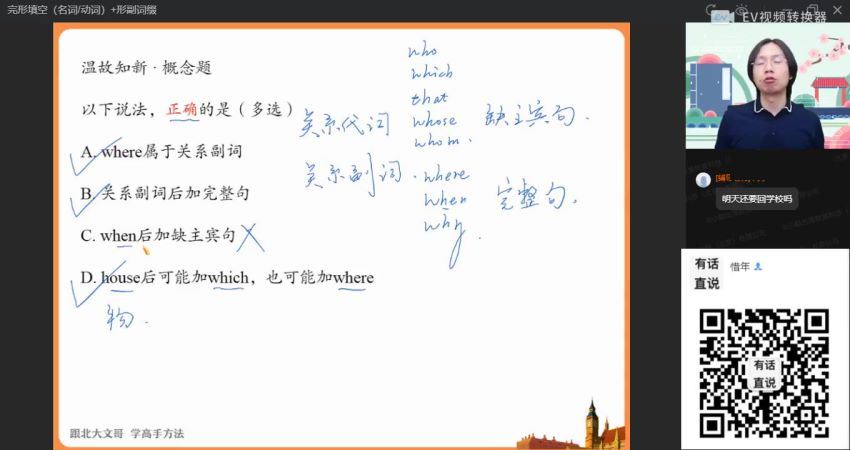 完形填空（名词/动词）+形副词缀
EV视频转换器
温故知新 · 概念题
以下说法，正确的是（多选）
A. where属于关系副词
B. 关系副词后加完整句
C. when后加缺主宾句
D. house后可能加which，也可能加where
物.
who
which
that
关系代词 whose 缺主宾句.
whom.
关系副词. where
when 完整句.
why.
跟北大文哥 学高手方法
明天还要回学校吗
有话
直说
惜年
有话
直说